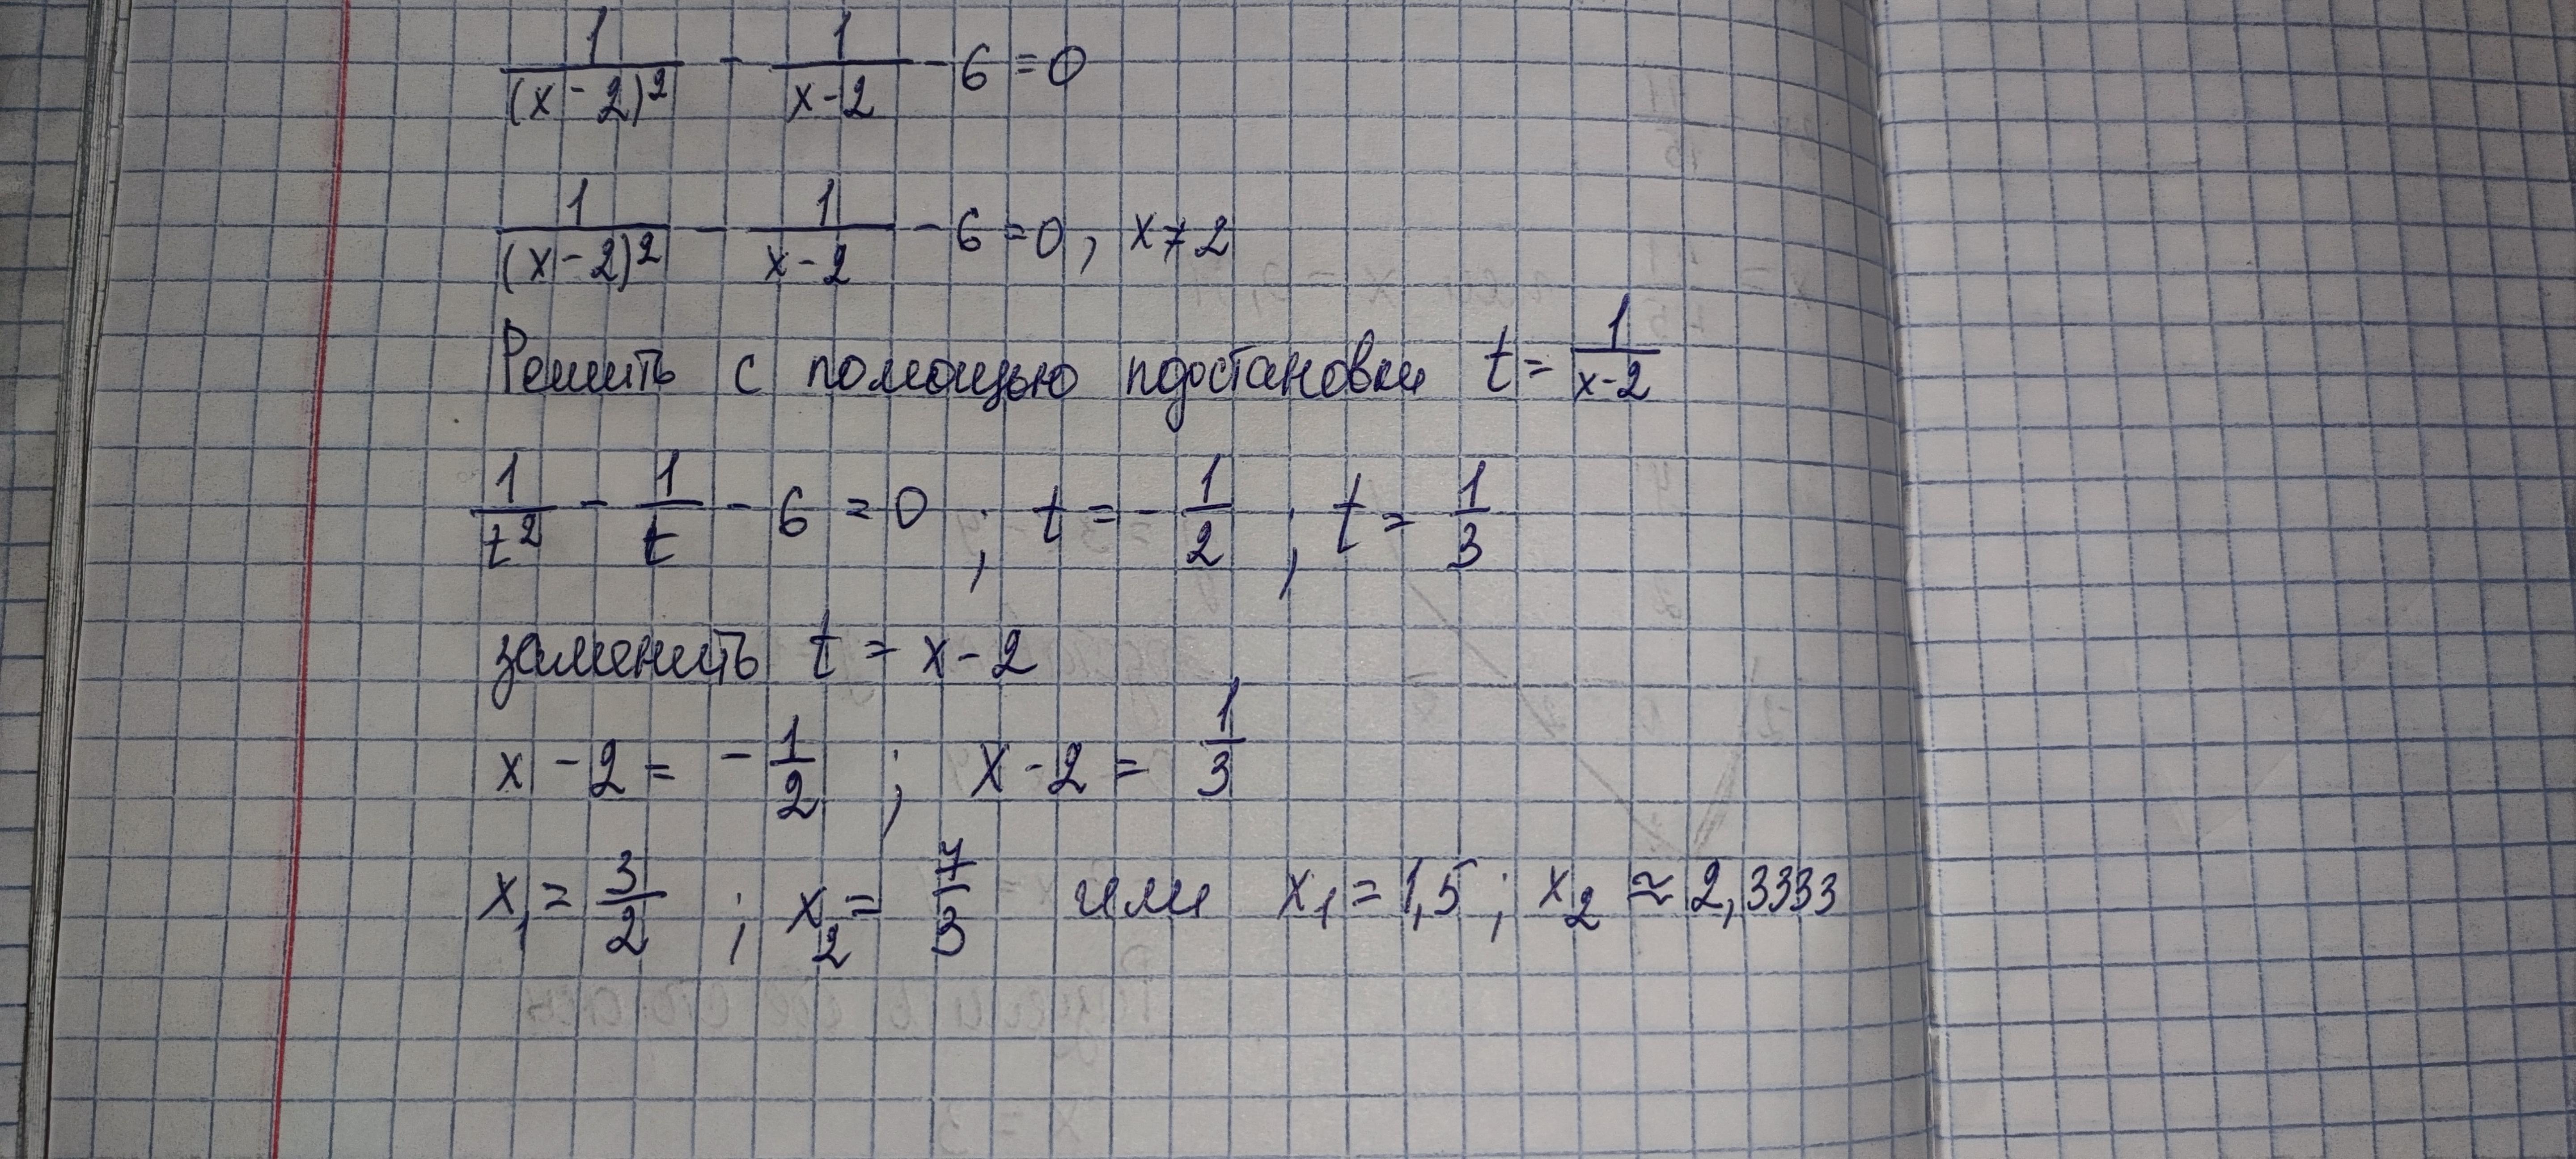 1/(x-2)² - 1/(x-2) - 6 = 0
1/(x-2)² - 1/(x-2) - 6 = 0, x ≠ 2
Решить с помощью подстановки t = 1/(x-2)
1/t² - 1/t - 6 = 0 ; t = -1/2 ; t = 1/3
заменить t = x - 2
x - 2 = -1/2 ; x - 2 = 1/3
x₁ = 3/2 ; x₂ = 7/3 или x₁ = 1,5 ; x₂ ≈ 2,3333